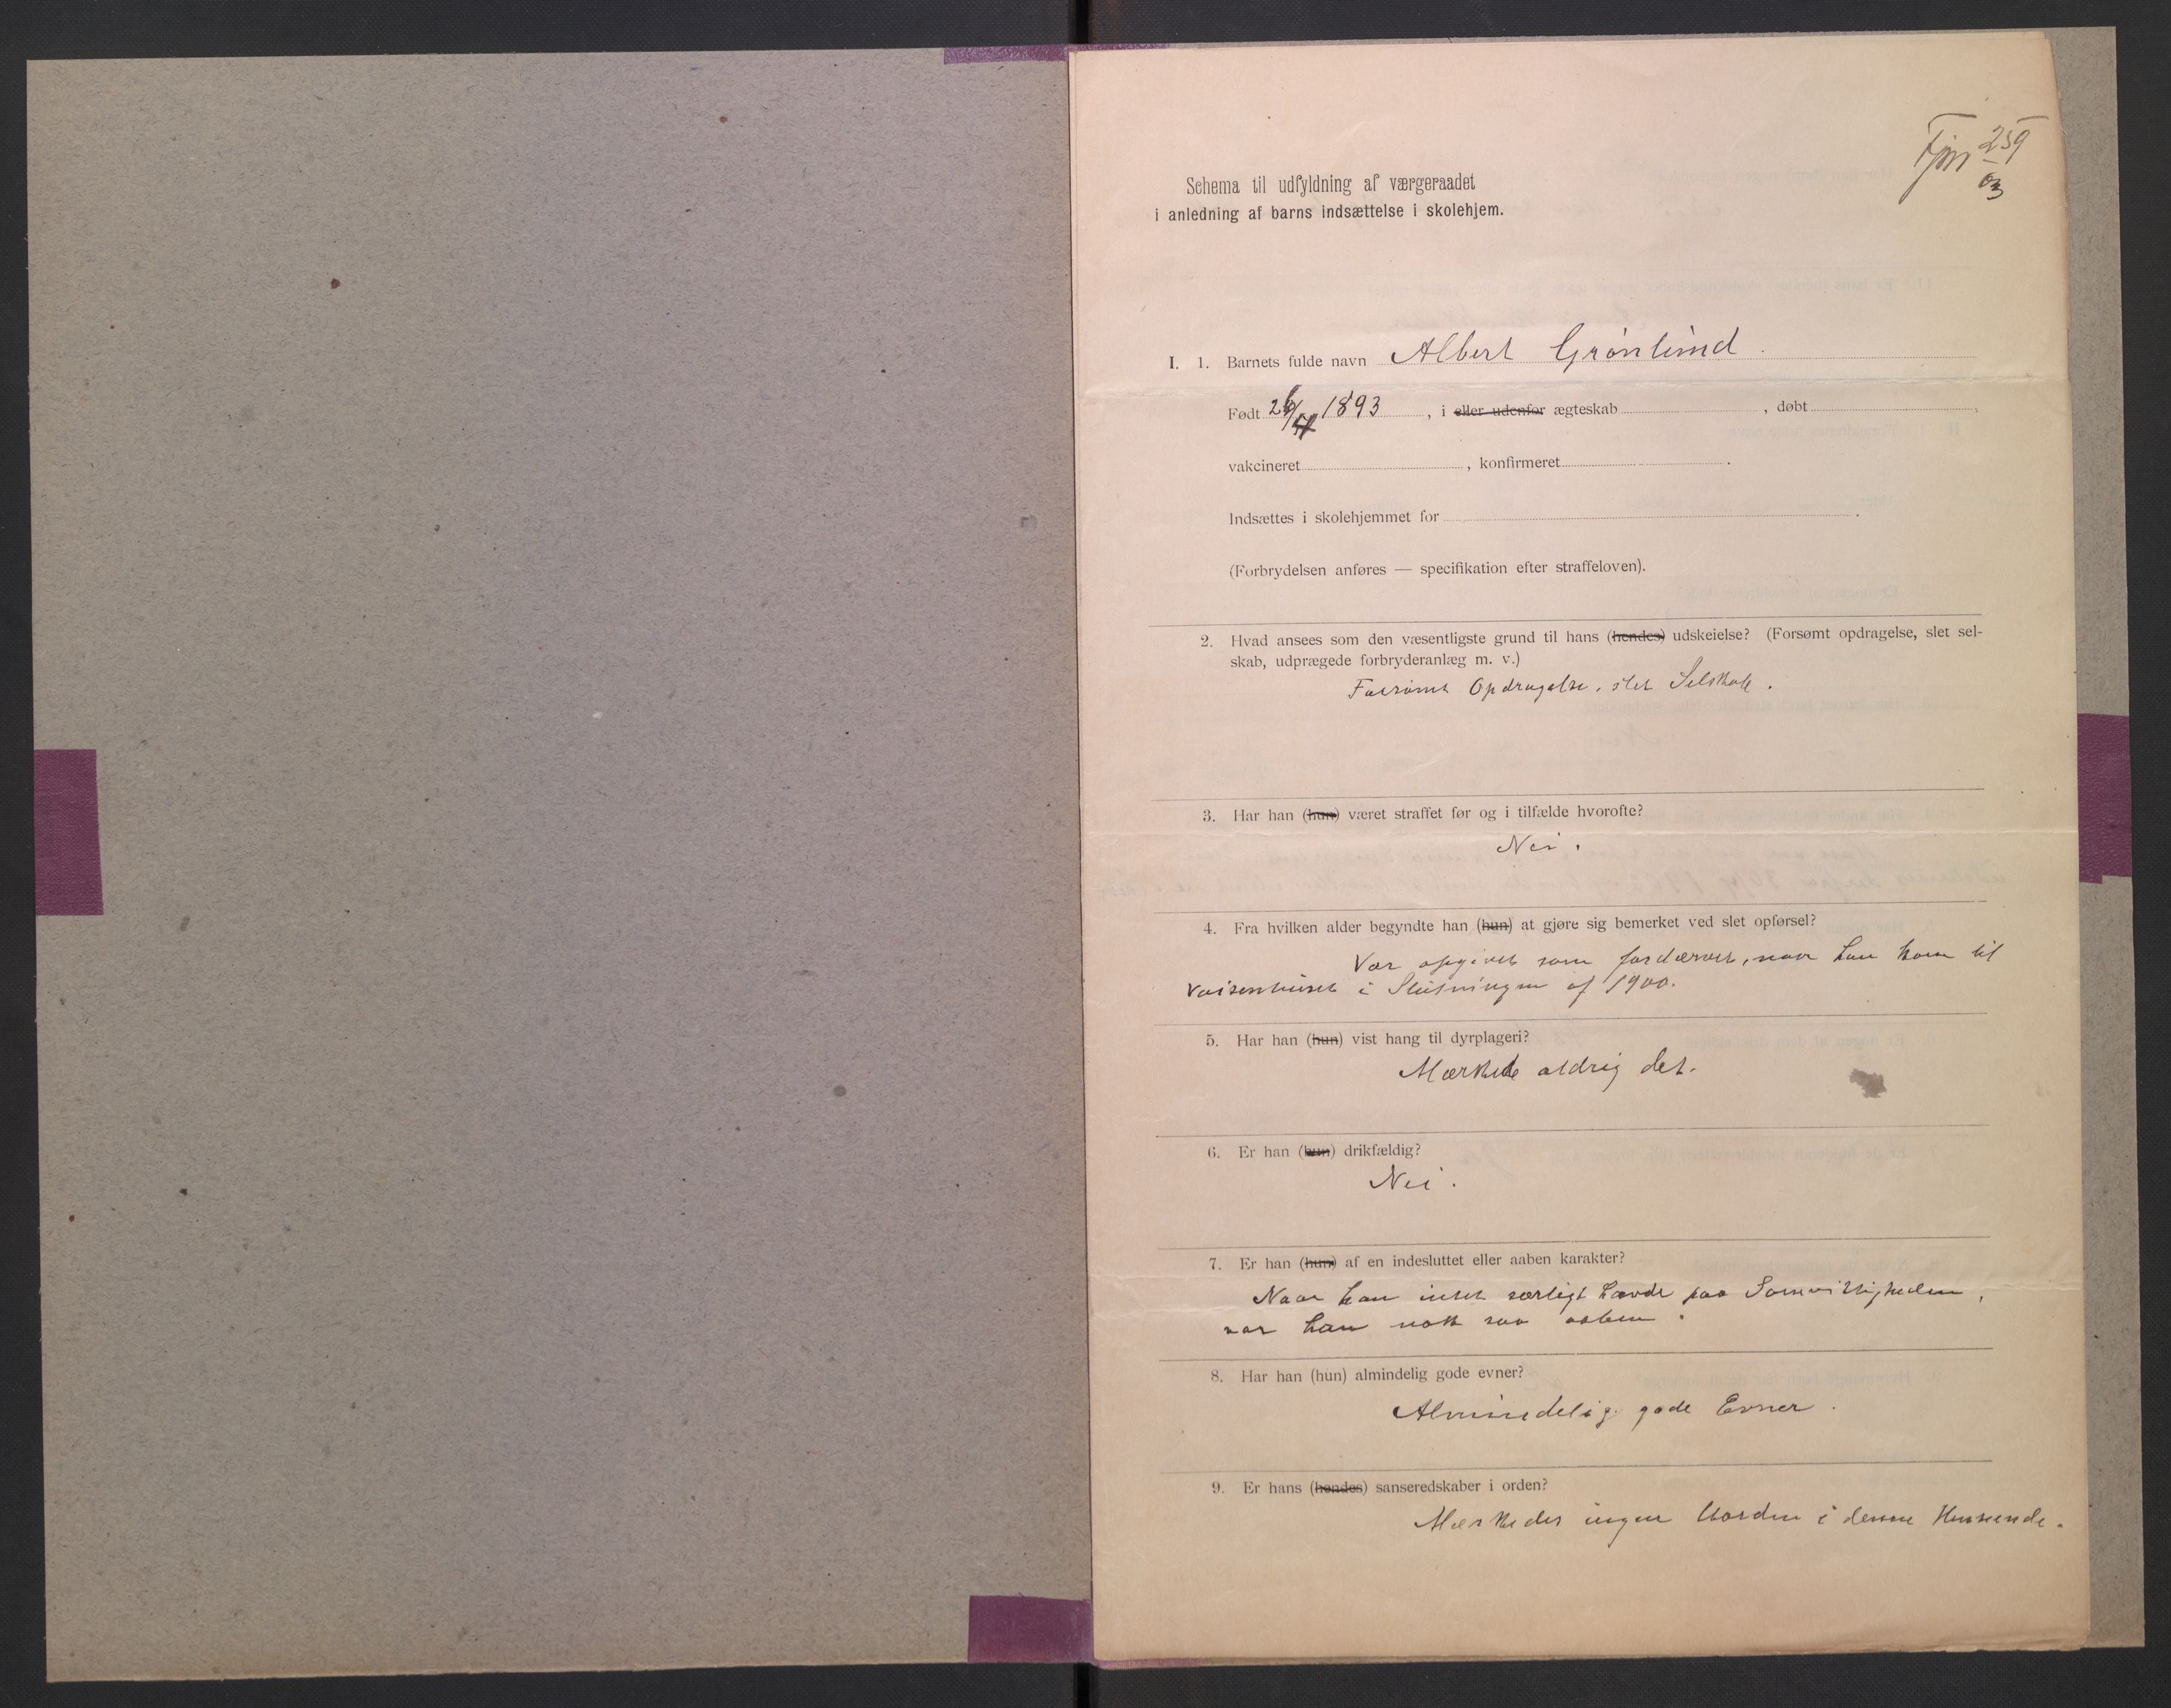 259
03
Schema til udfyldning af værgeraadet
i anledning af barns indsættelse i skolehjem.
I. 1. Barnets fulde navn Albert Grönlund.
Født 1893, i eller udenfor ægteskab, døbt
vakcineret, konfirmeret.
Indsættes i skolehjemmet for.
(Forbrydelsen anføres — specifikation efter straffeloven).
2. Hvad ansees som den væsentligste grund til hans (hendes) udskeielse? (Forsømt opdragelse, slet sel-
skab, udprægede forbryderanlæg m. v.)
Forsömt Opdragelse, slet Selskab.
3. Har han (hun) været straffet før og i tilfælde hvorofte?
Nei.
4. Fra hvilken alder begyndte han (hun) at gjøre sig bemerket ved slet opførsel?
Var opgivet som fordærvet, naar han kom til
Vaisenhuset i Slutningen af 1900.
5. Har han (hun) vist hang til dyrplageri?
Mærkede aldrig det.
6. Er han (hun) drikfældig?
Nei.
7. Er han (hun) af en indesluttet eller aaben karakter?
Naar han intet særligt havde paa Samvittigheden,
var han nok saa aaben.
8. Har han (hun) almindelig gode evner?
Almindelig gode Evner.
9. Er hans (hendes) sanseredskaber i orden?
Mærkedes ingen Uorden i denne Henseende.